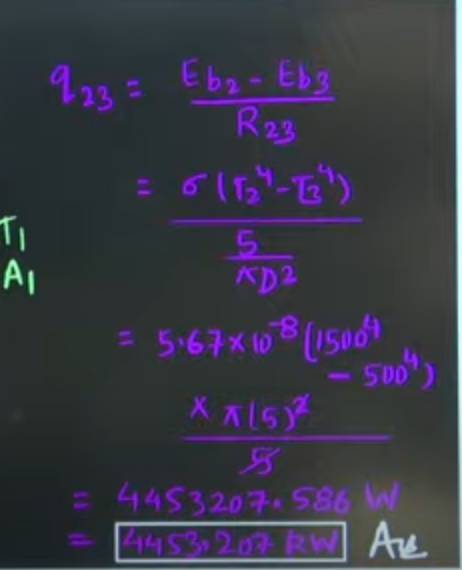 q23 = Eb2 - Eb3
R23
= σ(T2⁴-T3⁴)
5
πD²
T1
A1
= 5.67×10⁻⁸(1500⁴
- 500⁴)
× π(5)²
5
= 4453207.586 W
= 4453.207 kW Ans